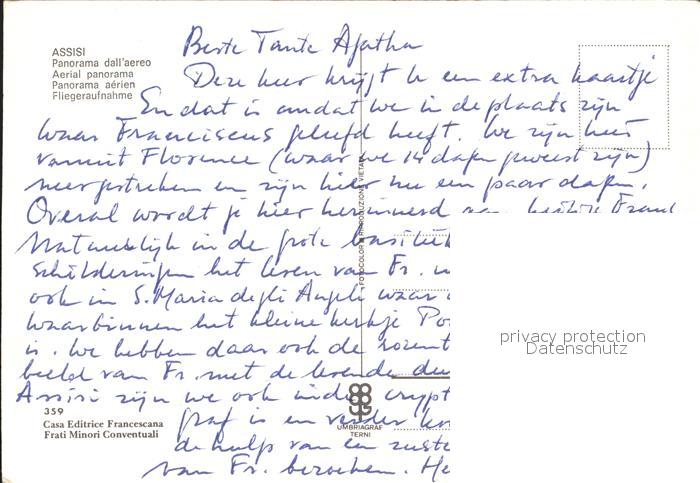 ASSISI
Panorama dall'aereo
Aerial panorama
Panorama aérien
Fliegeraufnahme
Beste Tante Agatha
Deze keer krijgt U een extra kaartje
En dat is omdat we in de plaats zijn
waar Franciscus geleefd heeft. We zijn hier
vanuit Florence (waar we 14 dagen geweest zijn)
neergestreken en zijn hier nu een paar dagen.
Overal wordt je hier herinnerd aan heilige Franc
Natuurlijk in de grote basiliek
schilderingen het leven van Fr.
ook in S. Maria degli Angeli waar
waarbinnen het kleine kerkje Po
is. We hebben daar ook de rozent
beeld van Fr. met de levende du
Assisi zijn we ook in de crypt
graf is en verder
de hulp van een zuste
van Fr. bezoeken. He
359
Casa Editrice Francescana
Frati Minori Conventuali
FOTOCOLOR RIPRODUZIONE VIETATA
UMBRIAGRAF
TERNI
privacy protection
Datenschutz